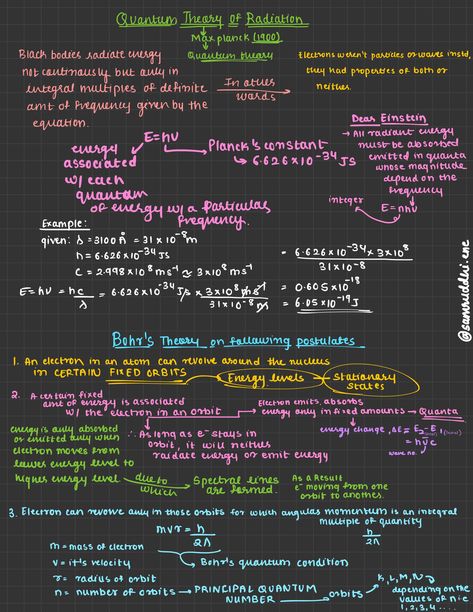 Quantum Theory of Radiation
Max planck (1900)
Quantum theory
Black bodies radiate energy
not continously but only in
integral multiples of definite
amt of frequency given by the
equation.
In other
words
Electrons weren't particles or waves instd,
they had properties of both or
neither.
E=hν
energy
associated
w/ each
quantum
of energy w/ a particular
frequency.
Planck's constant
↳ 6.626×10⁻³⁴ JS
Dear Einstein
→ All radiant energy
must be absorbed
emitted in quanta
whose magnitude
depend on the
frequency
integer
E=nhν
Example:
given: λ = 3100 Å = 31×10⁻⁸ m
h = 6.626×10⁻³⁴ JS
C = 2.998×10⁸ ms⁻¹ ≈ 3×10⁸ ms⁻¹
E=hν = hc/λ = 6.626×10⁻³⁴ J/s × 3×10⁸ ms⁻¹ / 31×10⁻⁸ m
= 6.626×10⁻³⁴ × 3×10⁸ / 31×10⁻⁸
= 0.605×10⁻¹⁸
= 6.05×10⁻¹⁹ J
@samruddhi.ene
Bohr's Theory on following postulates
1. An electron in an atom can revolve around the nucleus
in CERTAIN FIXED ORBITS
Energy levels
Stationary
States
2. A certain fixed
amt of energy is associated
w/ the electron in an orbit
Electron emits, absorbs
energy only in fixed amounts → Quanta
energy change, ΔE = E₂-E₁
= hν̄c
wave no.
∴ As long as e⁻ stays in
orbit, it will neither
raidate energy or emit energy
energy is only absorbed
or emitted only when
electron moves from
lower energy level to
higher energy level
due to
which
Spectral lines
are formed.
As a Result
e⁻ moving from one
orbit to another.
3. Electron can revolve only in those orbits for which angular momentum is an integral
multiple of quantity
h/2Λ
mvr = h/2Λ
m = mass of electron
v = it's velocity
r = radius of orbit
n = number of orbits → PRINCIPAL QUANTUM
NUMBER
Bohr's quantum condition
orbits
K, L, M, N
depending on the
values of n i.e
1, 2, 3, 4 ....